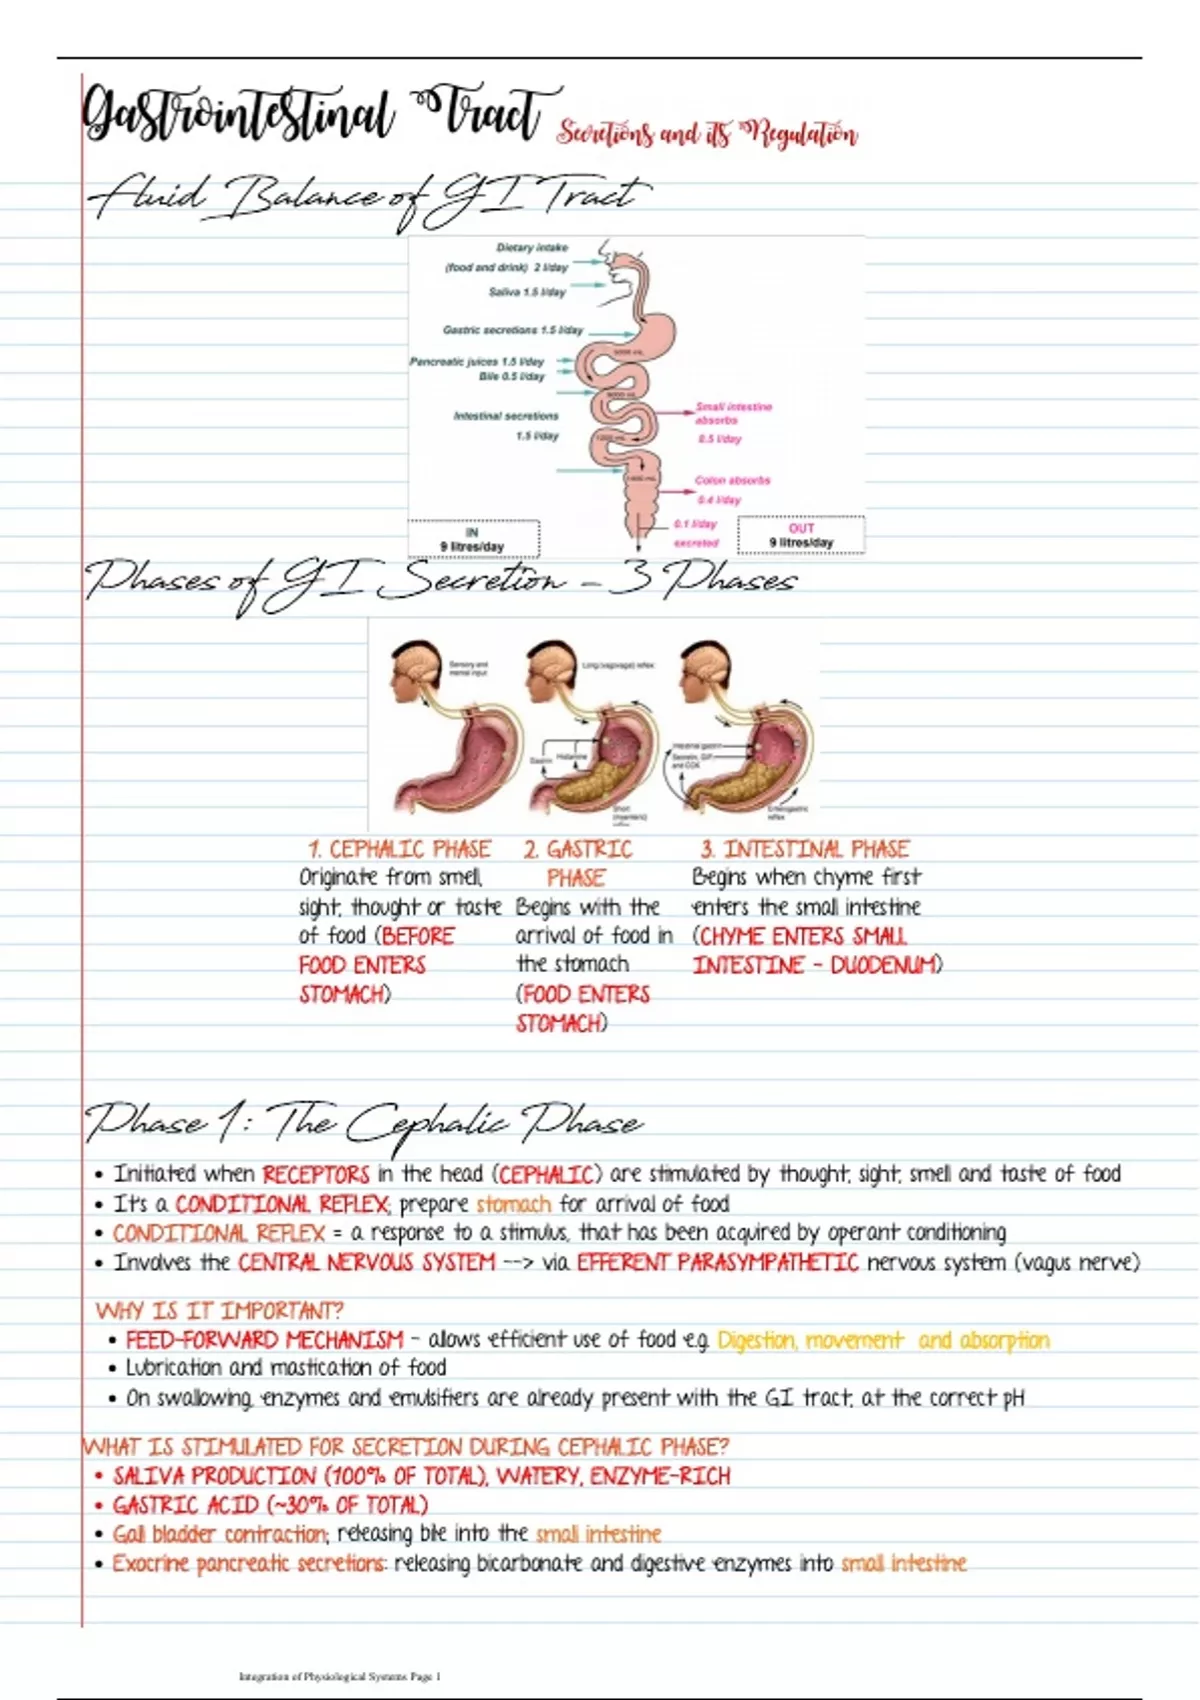 Gastrointestinal Tract Secretions and its Regulation
Fluid Balance of GI Tract
Dietary intake
(food and drink) 2 l/day
Saliva 1.5 l/day
Gastric secretions 1.5 l/day
Pancreatic juices 1.5 l/day
Bile 0.5 l/day
Intestinal secretions
1.5 l/day
Small intestine
absorbs
8.5 l/day
Colon absorbs
0.4 l/day
0.1 l/day
excreted
IN
9 litres/day
OUT
9 litres/day
Phases of GI Secretion - 3 Phases
Sensory and
mental input
Long (vagovagal) reflex
Gastrin
Histamine
Short
(myenteric)
reflex
Intestinal gastrin
Secretin, GIP,
and CCK
Enterogastric
reflex
1. CEPHALIC PHASE
Originate from smell,
sight, thought or taste
of food (BEFORE
FOOD ENTERS
STOMACH)
2. GASTRIC
PHASE
Begins with the
arrival of food in
the stomach
(FOOD ENTERS
STOMACH)
3. INTESTINAL PHASE
Begins when chyme first
enters the small intestine
(CHYME ENTERS SMALL
INTESTINE - DUODENUM)
Phase 1: The Cephalic Phase
• Initiated when RECEPTORS in the head (CEPHALIC) are stimulated by thought, sight, smell and taste of food
• It's a CONDITIONAL REFLEX; prepare stomach for arrival of food
• CONDITIONAL REFLEX = a response to a stimulus, that has been acquired by operant conditioning
• Involves the CENTRAL NERVOUS SYSTEM --> via EFFERENT PARASYMPATHETIC nervous system (vagus nerve)
WHY IS IT IMPORTANT?
• FEED-FORWARD MECHANISM - allows efficient use of food e.g. Digestion, movement and absorption
• Lubrication and mastication of food
• On swallowing, enzymes and emulsifiers are already present with the GI tract, at the correct pH
WHAT IS STIMULATED FOR SECRETION DURING CEPHALIC PHASE?
• SALIVA PRODUCTION (100% OF TOTAL), WATERY, ENZYME-RICH
• GASTRIC ACID (~30% OF TOTAL)
• Gall bladder contraction; releasing bile into the small intestine
• Exocrine pancreatic secretions: releasing bicarbonate and digestive enzymes into small intestine
Integration of Physiological Systems Page 1